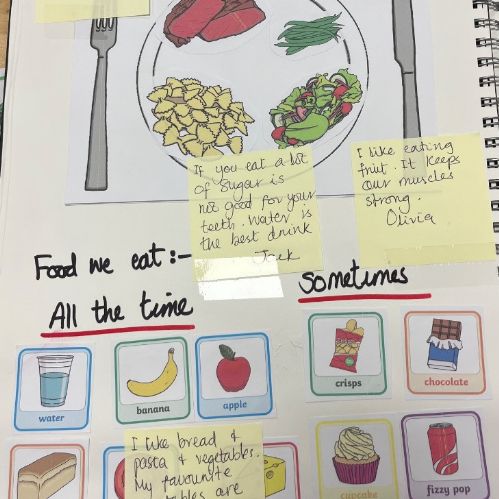 If you eat a lot
of sugar is
not good for your
teeth. Water is
the best drink
Jack
I like eating
fruit. It keeps
our muscles
strong.
Olivia
Food we eat :-
All the time
Sometimes
water
banana
apple
crisps
chocolate
I like bread &
pasta & vegetables.
My favourite
are
cupcake
fizzy pop